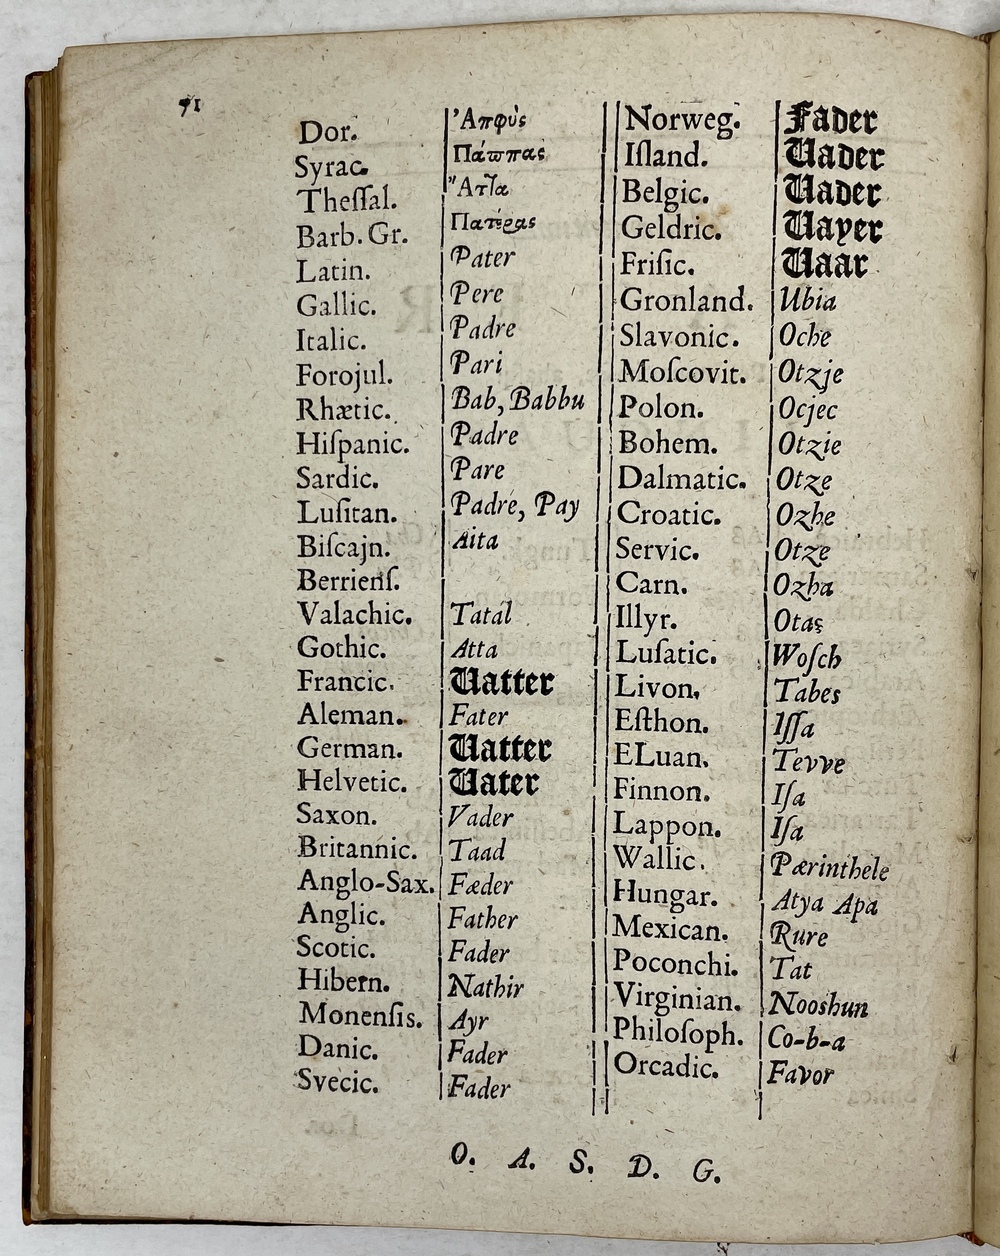 71
Dor. Ἀπφὺς
Syrac. Πάππας
Theſſal. Ἄττα
Barb. Gr. Πατέρας
Latin. Pater
Gallic. Pere
Italic. Padre
Forojul. Pari
Rhætic. Bab, Babbu
Hiſpanic. Padre
Sardic. Pare
Luſitan. Padre, Pay
Biſcajn. Aita
Berrienſ.
Valachic. Tatal
Gothic. Atta
Francic. Vatter
Aleman. Fater
German. Vatter
Helvetic. Vater
Saxon. Vader
Britannic. Taad
Anglo-Sax. Fæder
Anglic. Father
Scotic. Fader
Hibern. Nathir
Monenſis. Ayr
Danic. Fader
Svecic. Fader
Norweg. Fader
Iſland. Vader
Belgic. Vader
Geldric. Vayer
Friſic. Vaar
Gronland. Ubia
Slavonic. Oche
Moſcovit. Otzje
Polon. Ocjec
Bohem. Otzie
Dalmatic. Otze
Croatic. Ozhe
Servic. Otze
Carn. Ozha
Illyr. Otaş
Luſatic. Woſch
Livon. Tabes
Eſthon. Iſſa
ELuan. Tevve
Finnon. Iſa
Lappon. Iſa
Wallic. Pærinthele
Hungar. Atya Apa
Mexican. Rure
Poconchi. Tat
Virginian. Nooshun
Philoſoph. Co-b-a
Orcadic. Favor
O. A. S. D. G.